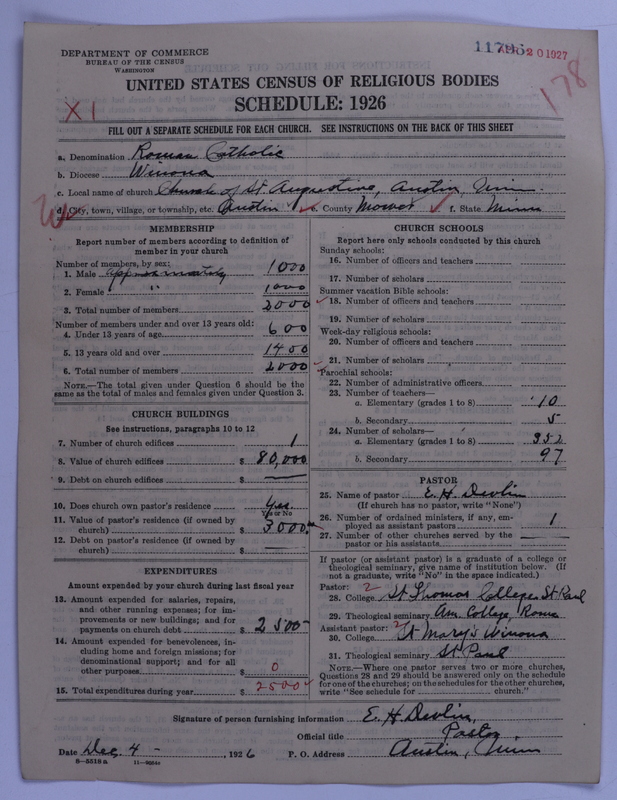 DEPARTMENT OF COMMERCE
BUREAU OF THE CENSUS
WASHINGTON
20 1927
178
UNITED STATES CENSUS OF RELIGIOUS BODIES
SCHEDULE: 1926
X1
FILL OUT A SEPARATE SCHEDULE FOR EACH CHURCH. SEE INSTRUCTIONS ON THE BACK OF THIS SHEET
a. Denomination Roman Catholic
b. Diocese Winona
c. Local name of church Church of St Augustine, Austin, Minn.
d. City, town, village, or township, etc. Austin e. County Mower f. State Minn
MEMBERSHIP
Report number of members according to definition of
member in your church
Number of members, by sex:
1. Male approximately 1000
2. Female " 1000
3. Total number of members 2000
Number of members under and over 13 years old:
4. Under 13 years of age 600
5. 13 years old and over 1400
6. Total number of members 2000
NOTE.—The total given under Question 6 should be the
same as the total of males and females given under Question 3.
CHURCH BUILDINGS
See instructions, paragraphs 10 to 12
7. Number of church edifices 1
8. Value of church edifices $ 80,000
9. Debt on church edifices $ —
10. Does church own pastor's residence Yes
Yes or No
11. Value of pastor's residence (if owned by
church) $ 3000.00
12. Debt on pastor's residence (if owned by
church) $ —
EXPENDITURES
Amount expended by your church during last fiscal year
13. Amount expended for salaries, repairs,
and other running expenses; for im-
provements or new buildings; and for
payments on church debt $ 2500
14. Amount expended for benevolences, in-
cluding home and foreign missions; for
denominational support; and for all
other purposes $ 0
15. Total expenditures during year $ 2500
CHURCH SCHOOLS
Report here only schools conducted by this church
Sunday schools:
16. Number of officers and teachers
17. Number of scholars
Summer vacation Bible schools:
18. Number of officers and teachers
19. Number of scholars
Week-day religious schools:
20. Number of officers and teachers
21. Number of scholars
Parochial schools:
22. Number of administrative officers
23. Number of teachers—
a. Elementary (grades 1 to 8) 10
b. Secondary 5
24. Number of scholars—
a. Elementary (grades 1 to 8) 352
b. Secondary 97
PASTOR
25. Name of pastor E. H. Devlin
(If church has no pastor, write "None")
26. Number of ordained ministers, if any, em-
ployed as assistant pastors 1
27. Number of other churches served by the
pastor or his assistants —
If pastor (or assistant pastor) is a graduate of a college or
theological seminary, give name of institution below. (If
not a graduate, write "No" in the space indicated.)
Pastor: 2
28. College St Thomas College St Paul
29. Theological seminary Am. College, Rome
Assistant pastor: 2
30. College St Mary's Winona
31. Theological seminary St. Paul
NOTE.—Where one pastor serves two or more churches,
Questions 28 and 29 should be answered only on the schedule
for one of the churches; on the schedules for the other churches,
write "See schedule for church."
Signature of person furnishing information E. H. Devlin,
Official title Pastor
Date Dec. 4 - , 1926 P. O. Address Austin, Minn
8—5518a